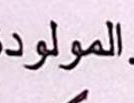 المولود.